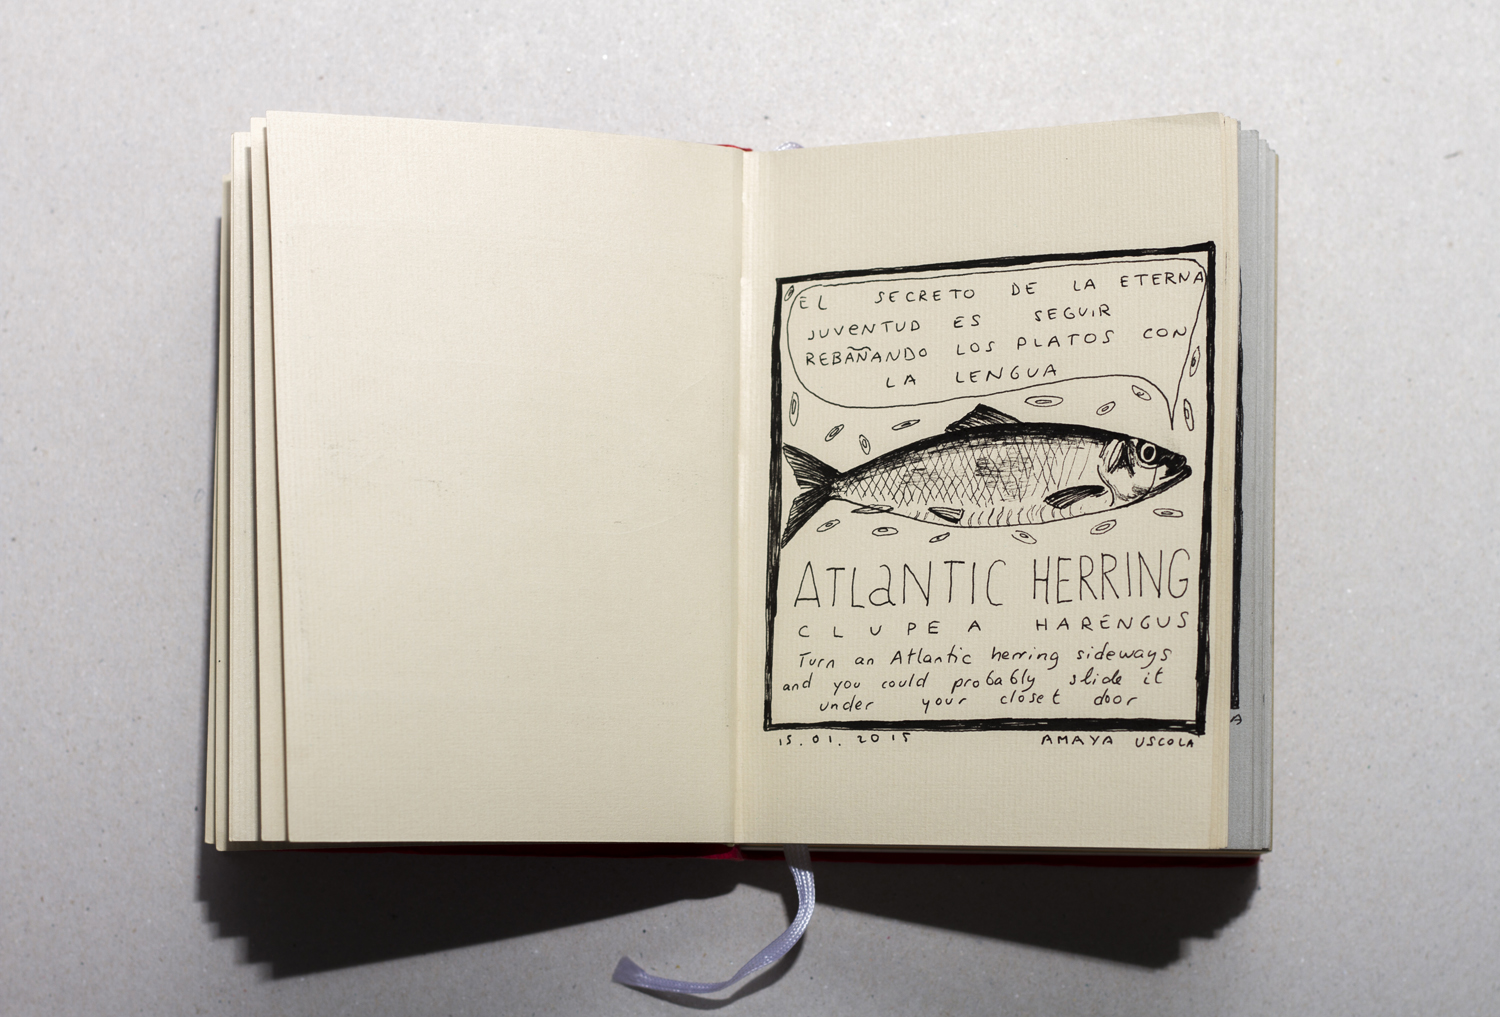 EL SECRETO DE LA ETERNA
JUVENTUD ES SEGUIR
REBAÑANDO LOS PLATOS CON
LA LENGUA
ATLANTIC HERRING
CLUPEA HARENGUS
Turn an Atlantic herring sideways
and you could probably slide it
under your closet door
15.01.2015 AMAYA USCOLA
A